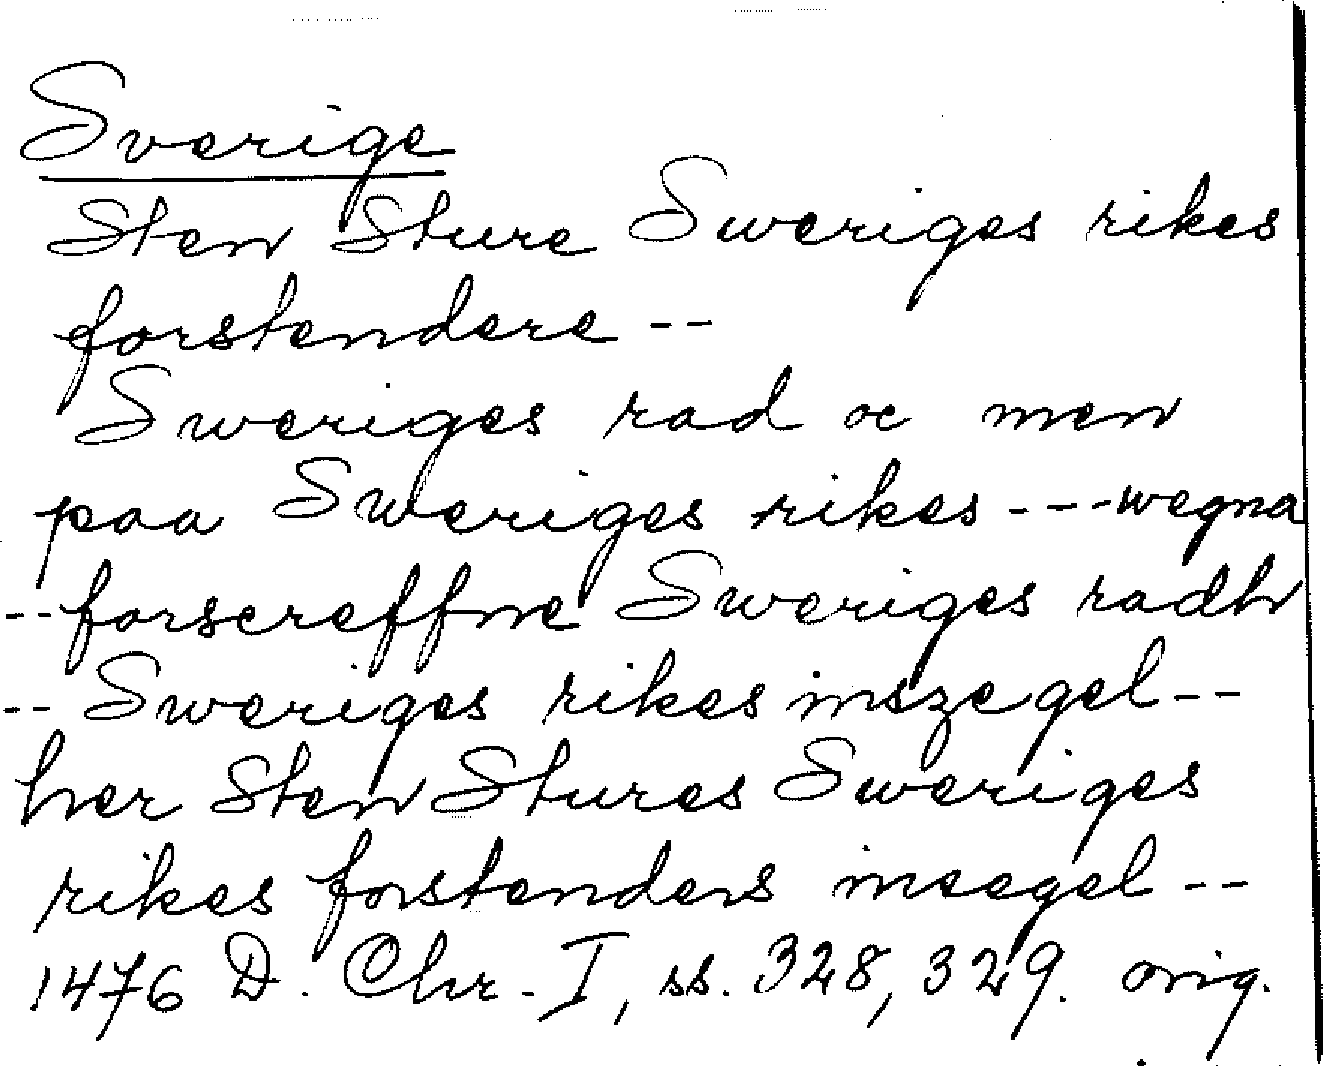 Sverige
Sten Sture Sweriges rikes
forstendere --
Sweriges rad oc men
paa Sweriges rikes --- wegna
-- forscreffne Sweriges radh
-- Sweriges rikes inszegel --
her Sten Stures Sweriges
rikes forstenders incegel --
1476 D. Chr. I, ss. 328, 329. orig.